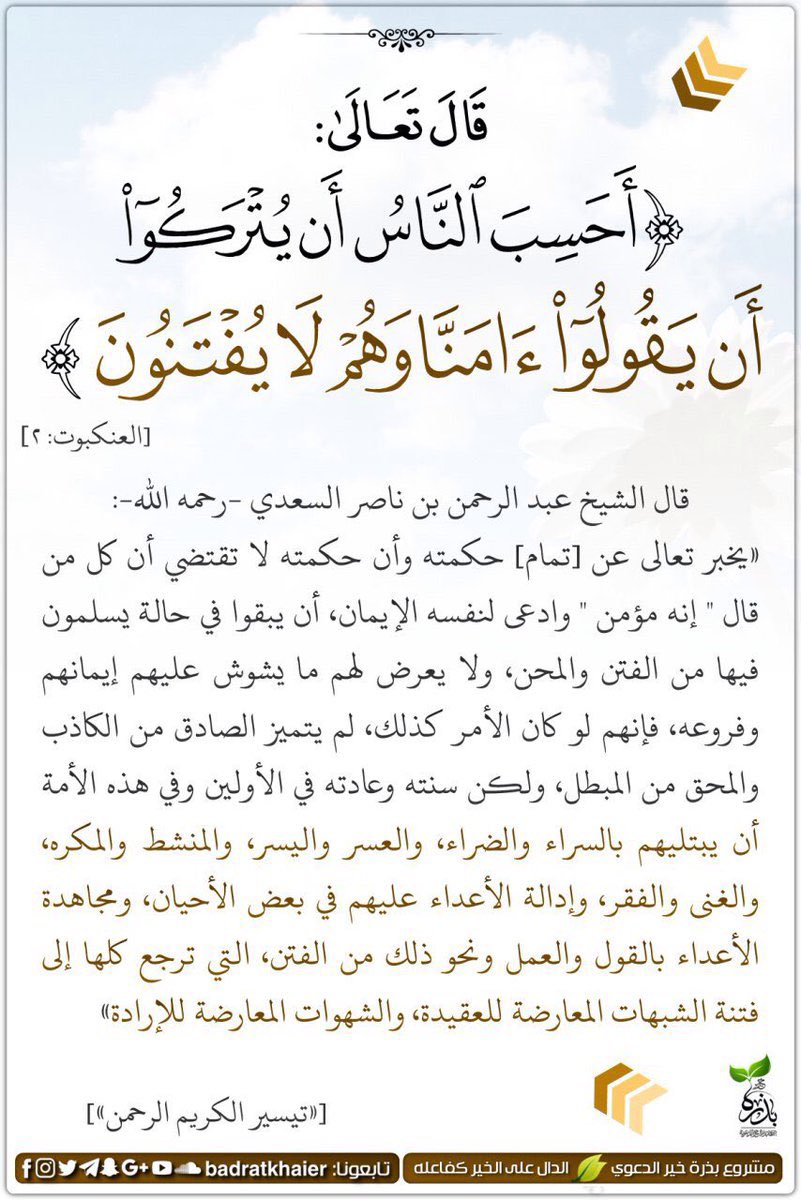 قَالَ تَعَالَىٰ:
﴿أَحَسِبَ ٱلنَّاسُ أَن يُتْرَكُوٓا۟
أَن يَقُولُوٓا۟ ءَامَنَّا وَهُمْ لَا يُفْتَنُونَ﴾
[العنكبوت: ٢]
قال الشيخ عبد الرحمن بن ناصر السعدي -رحمه الله-:
«يخبر تعالى عن [تمام] حكمته وأن حكمته لا تقتضي أن كل من
قال " إنه مؤمن " وادعى لنفسه الإيمان، أن يبقوا في حالة يسلمون
فيها من الفتن والمحن، ولا يعرض لهم ما يشوش عليهم إيمانهم
وفروعه، فإنهم لو كان الأمر كذلك، لم يتميز الصادق من الكاذب
والمحق من المبطل، ولكن سنته وعادته في الأولين وفي هذه الأمة
أن يبتليهم بالسراء والضراء، والعسر واليسر، والمنشط والمكره،
والغنى والفقر، وإدالة الأعداء عليهم في بعض الأحيان، ومجاهدة
الأعداء بالقول والعمل ونحو ذلك من الفتن، التي ترجع كلها إلى
فتنة الشبهات المعارضة للعقيدة، والشهوات المعارضة للإرادة»
[«تيسير الكريم الرحمن»]
بذرة
مشروع بذرة خير الدعوي الدال على الخير كفاعله
تابعونا: badratkhaier